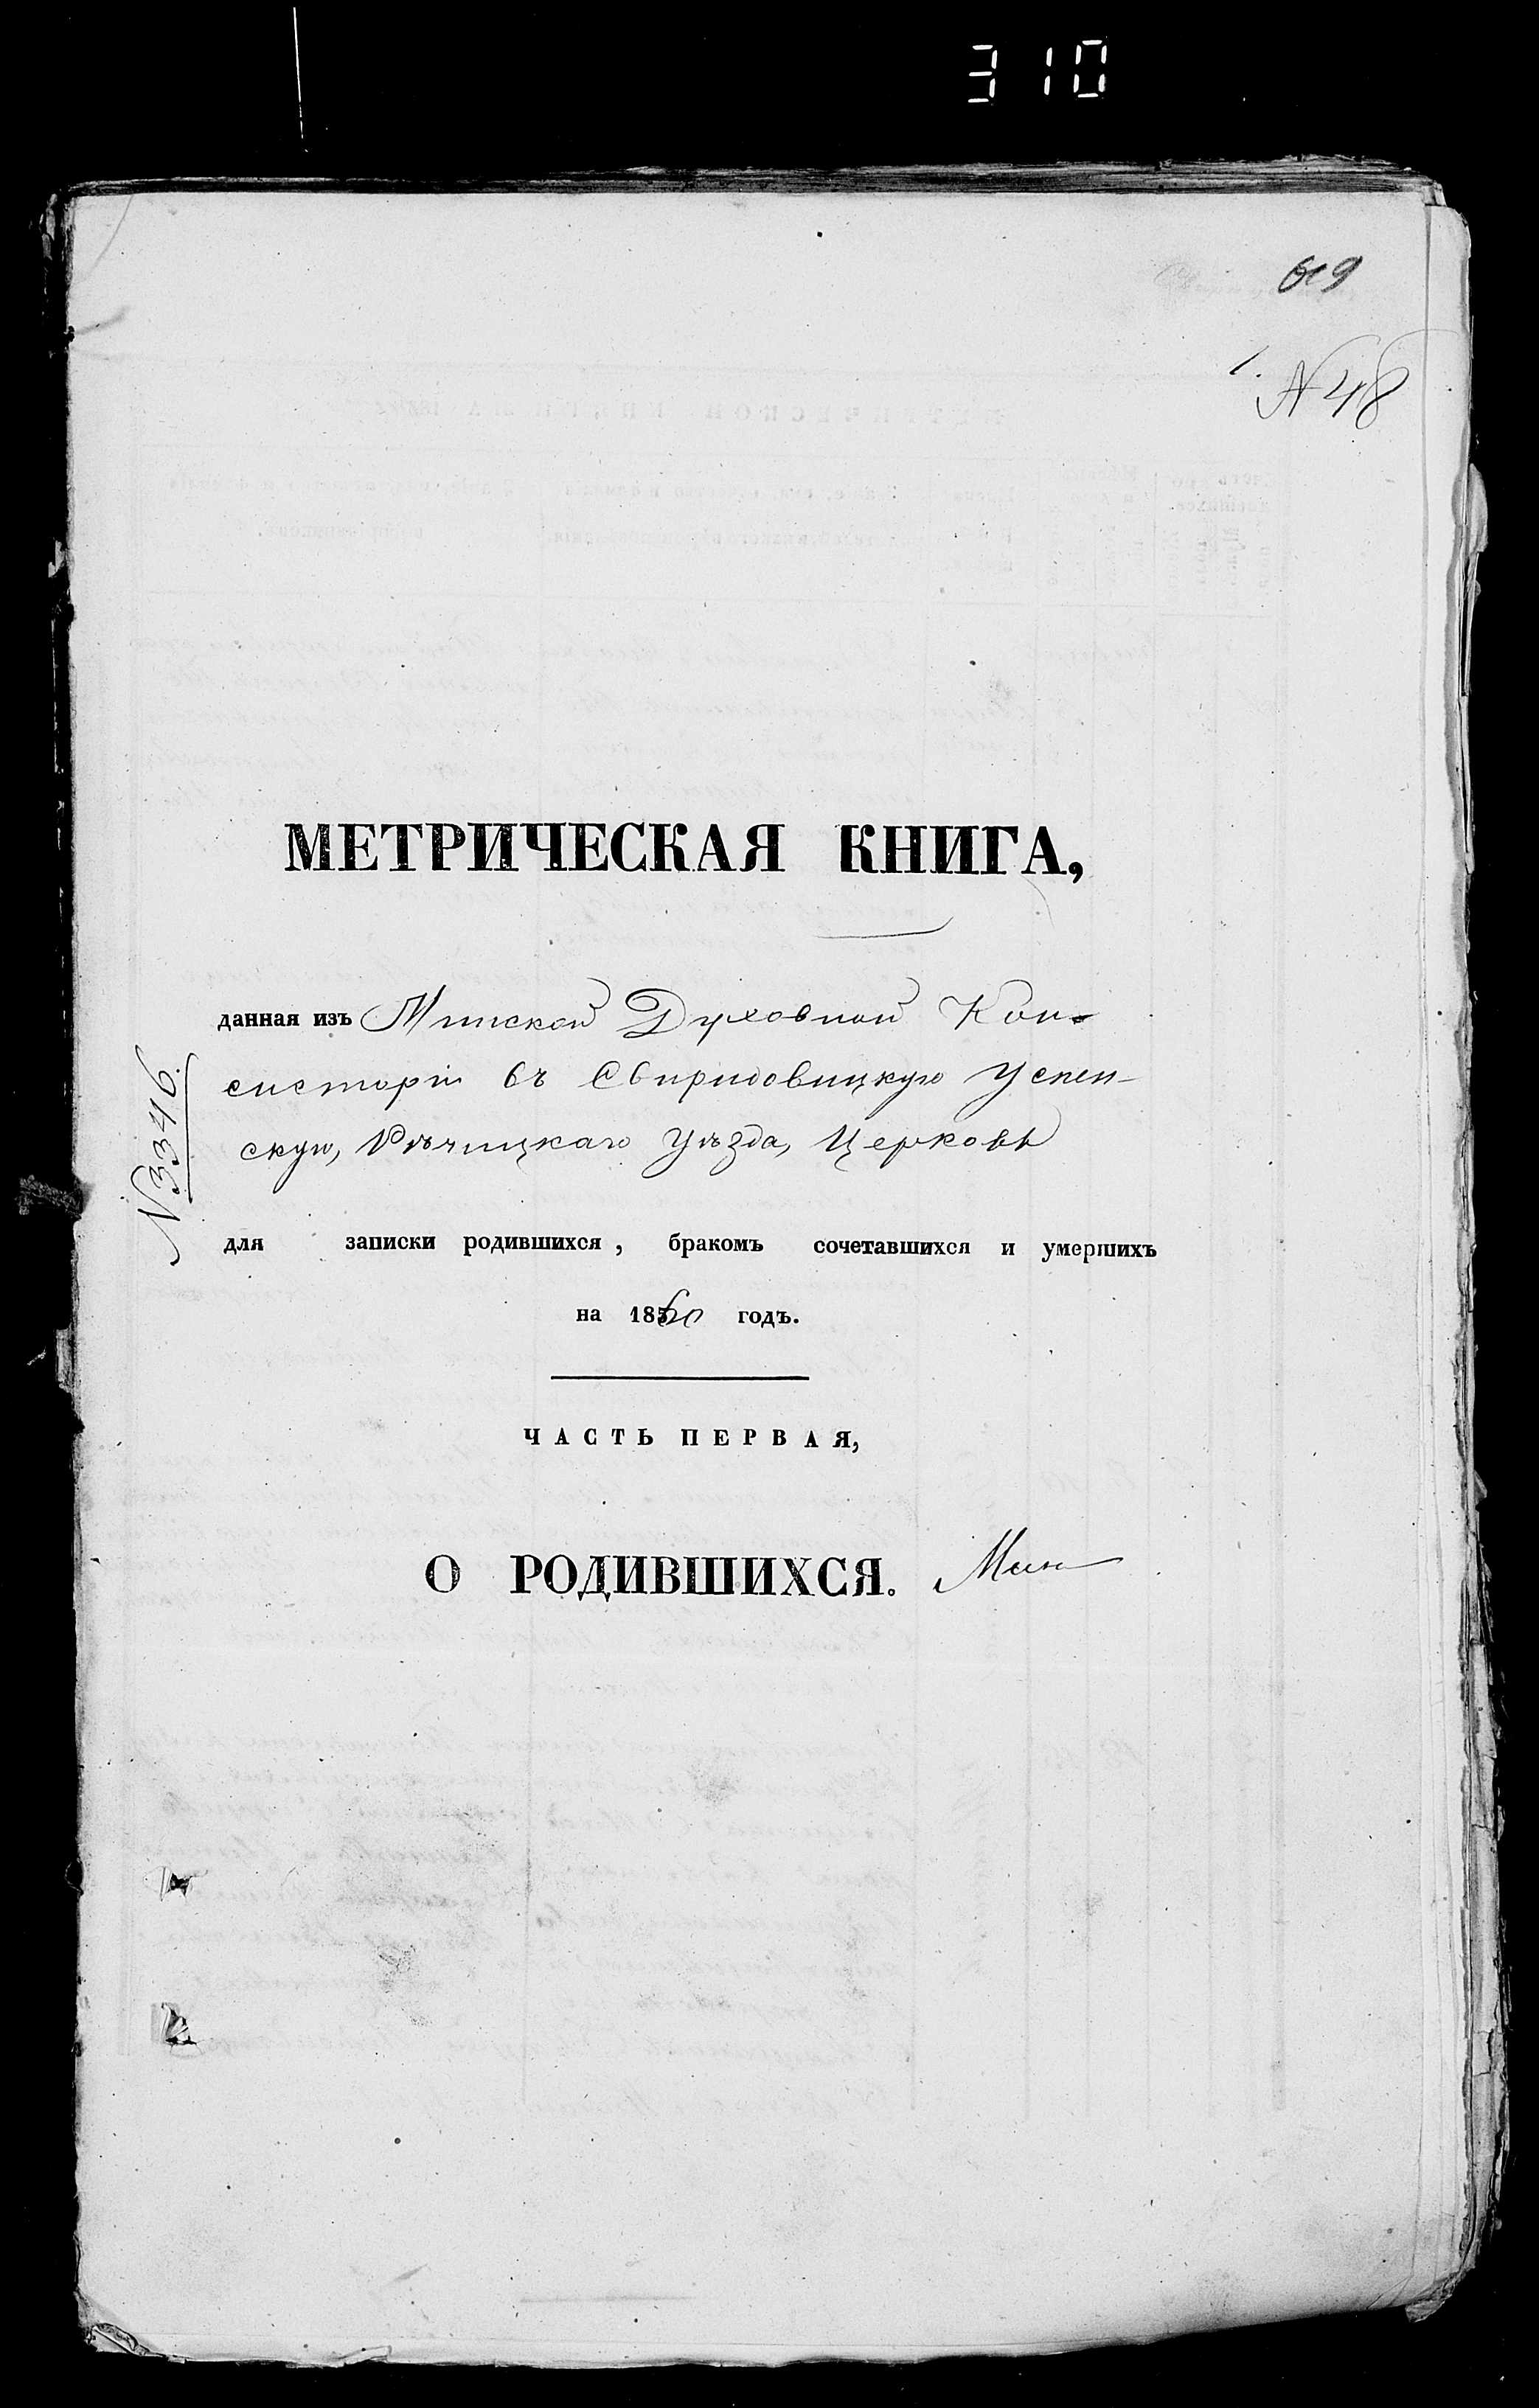 310
1.
N 48
МЕТРИЧЕСКАЯ КНИГА,
данная изъ Минской Духовной Кон-
систоріи въ Свиридовицкую Успен-
скую, Рѣчицкаго Уѣзда, Церковь
N 3346.
для записки родившихся, бракомъ сочетавшихся и умершихъ
на 1860 годъ.
ЧАСТЬ ПЕРВАЯ,
О РОДИВШИХСЯ.